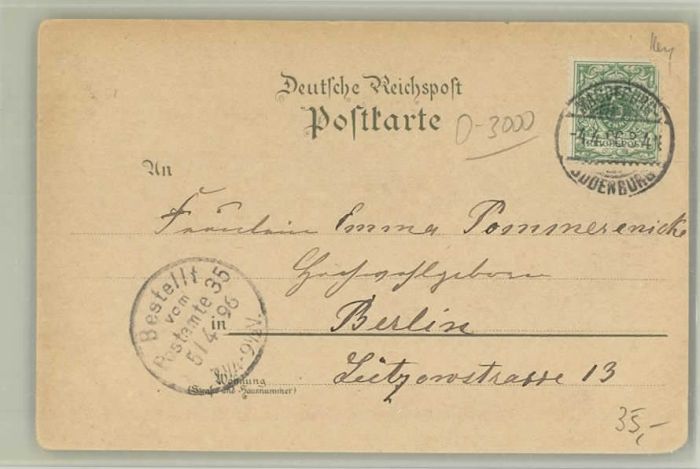 Deutsche Reichspost
Postkarte
D-3000
An
MAGDEBURG
SUDENBURG
Fräulein Emma Pommerenicke
Hochwohlgeboren
in Berlin
Lützowstrasse 13
Wohnung
(Straße und Hausnummer)
Bestellt
vom
Postamte 35
5/4 96
35,-